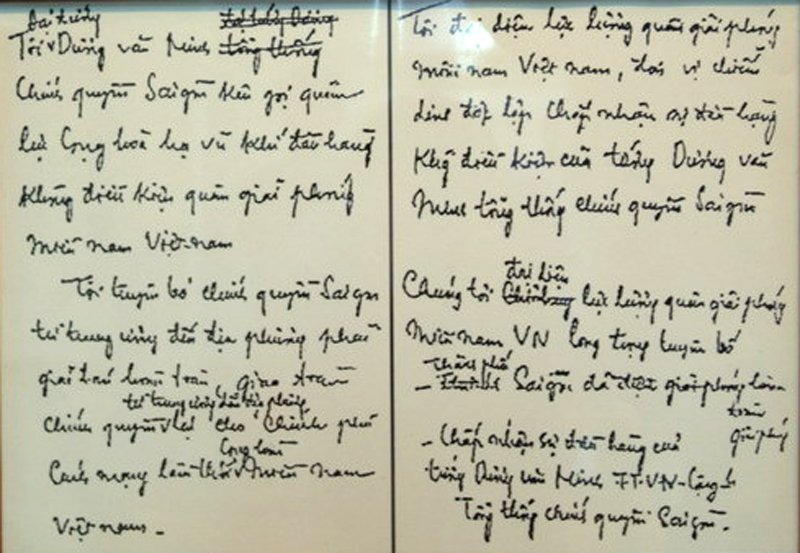 Đại tướng
Tôi Dương văn Minh tổng thống
Chính quyền Saigon kêu gọi quân
lực Cộng hoà hạ vũ khí đầu hàng
không điều kiện quân giải phóng
miền nam Việt-nam
Tôi tuyên bố chính quyền Saigon
từ trung ương đến địa phương phải
giải tán hoàn toàn, giao toàn
từ trung ương đến địa phương
chính quyền lại cho chính phủ
Cộng hoà
Cách mạng lâm thời miền nam
Việt nam –
Tôi đại diện lực lượng quân giải phóng
miền nam Việt nam,
chấp nhận sự đầu hàng
không điều kiện của tướng Dương văn
Minh tổng thống chính quyền Saigon
đại diện
Chúng tôi lực lượng quân giải phóng
miền nam VN long trọng tuyên bố
Thành phố
– Saigon đã được giải phóng hoàn
toàn
giải phóng
– Chấp nhận sự đầu hàng của
tướng Dương văn Minh
Tổng thống chính quyền Saigon.